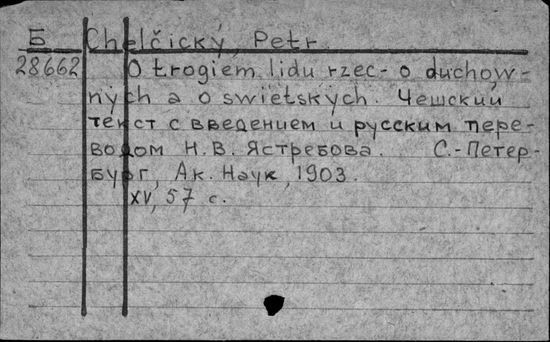 Б Chelčický, Petr.
28662 O trogiem lidu rzec - o duchow-
ných a o swietských. Чешский
текст с введением и русским пере-
водом Н.В. Ястребова. С.-Петер-
бург, Ак. Наук, 1903.
XV, 57 с.